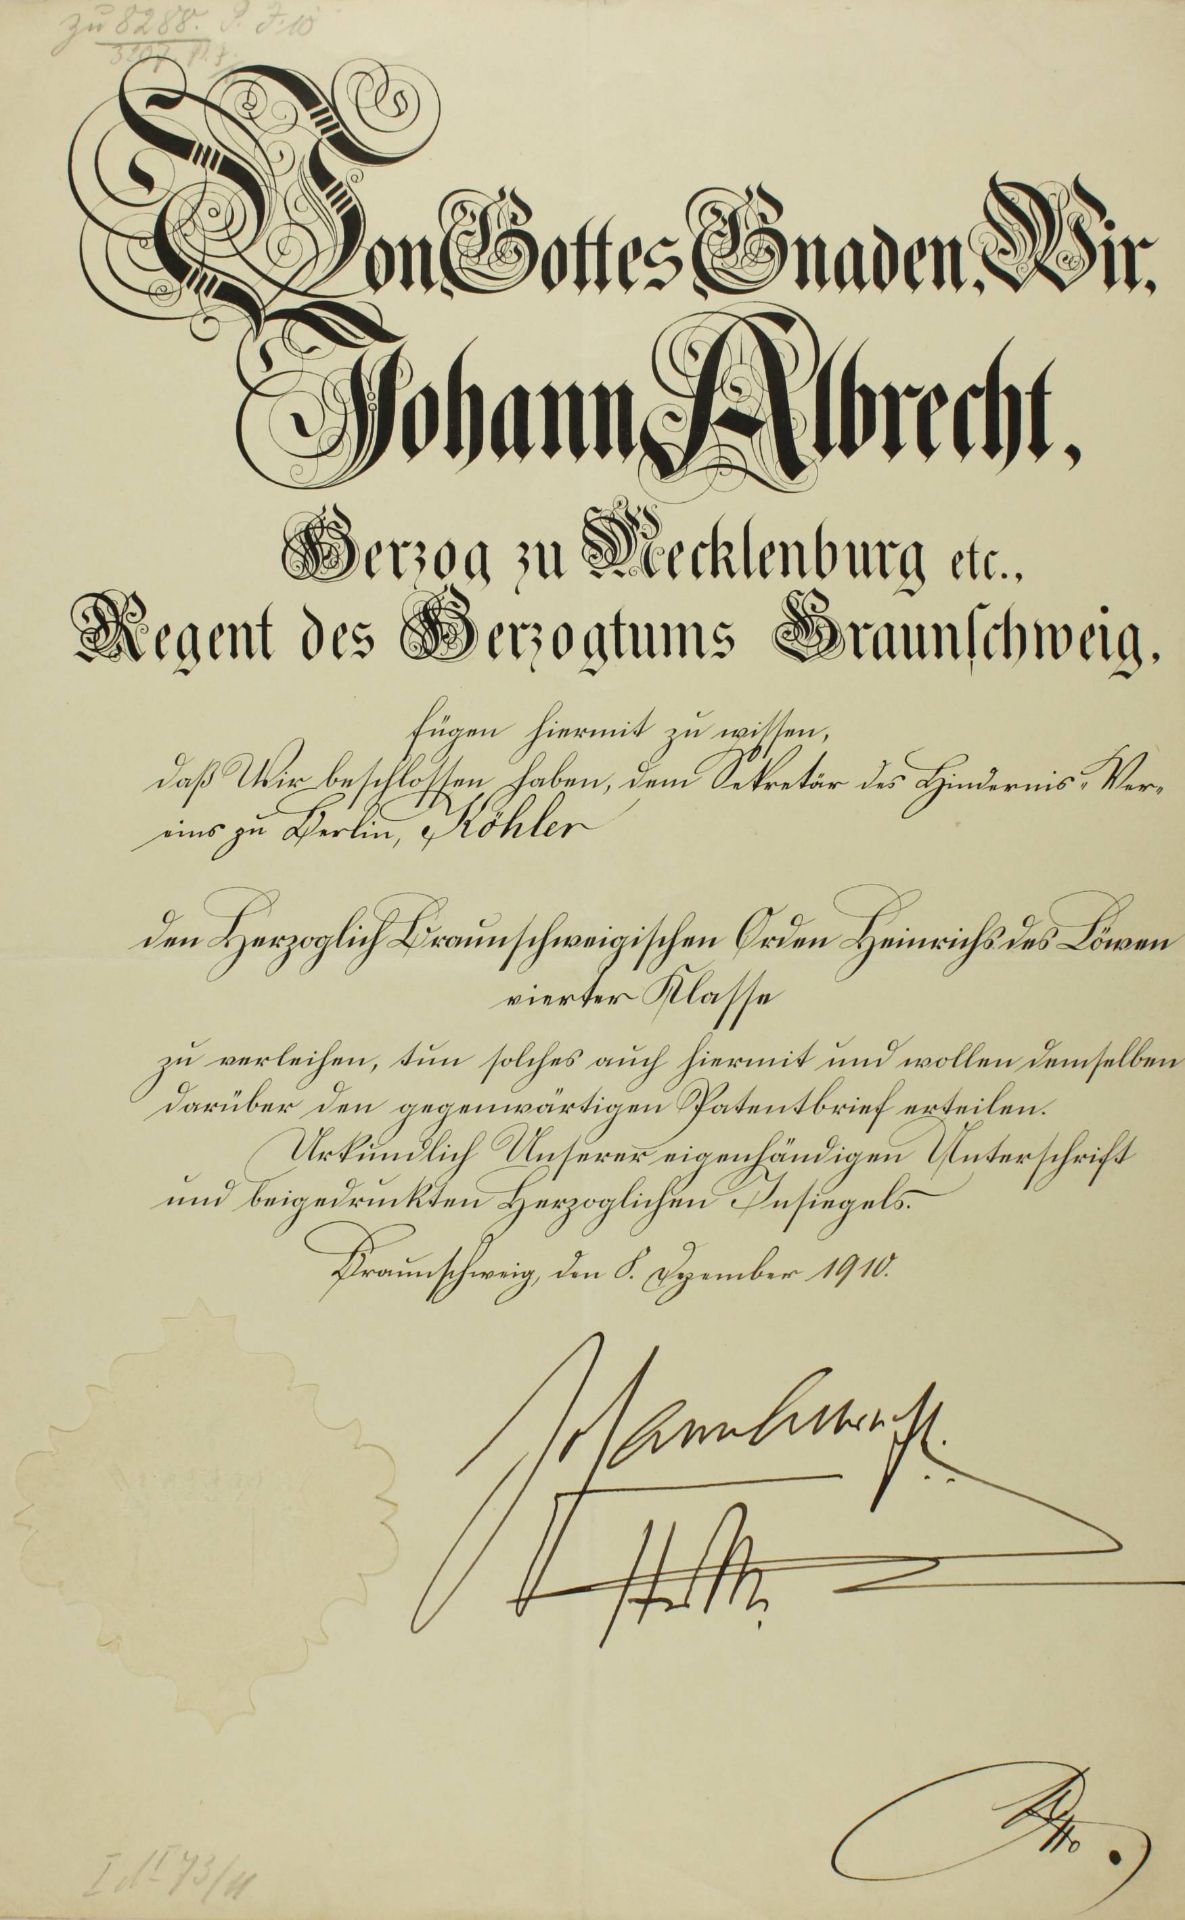 zu 8288. P. J. 10
Von Gottes Gnaden, Wir,
Johann Albrecht,
Herzog zu Mecklenburg etc.,
Regent des Herzogtums Braunſchweig,
fügen hiermit zu wissen,
daß Wir beschlossen haben, dem Sekretär des Hindernis-Ver-
eins zu Berlin, Köhler
den Herzoglich Braunschweigischen Orden Heinrichs des Löwen
vierter Klasse
zu verleihen, tun solches auch hiermit und wollen demselben
darüber den gegenwärtigen Patentbrief erteilen.
Urkundlich Unserer eigenhändigen Unterschrift
und beigedruckten Herzoglichen Insiegels.
Braunschweig, den 8. Dezember 1910.
Johann Albrecht
Otto.